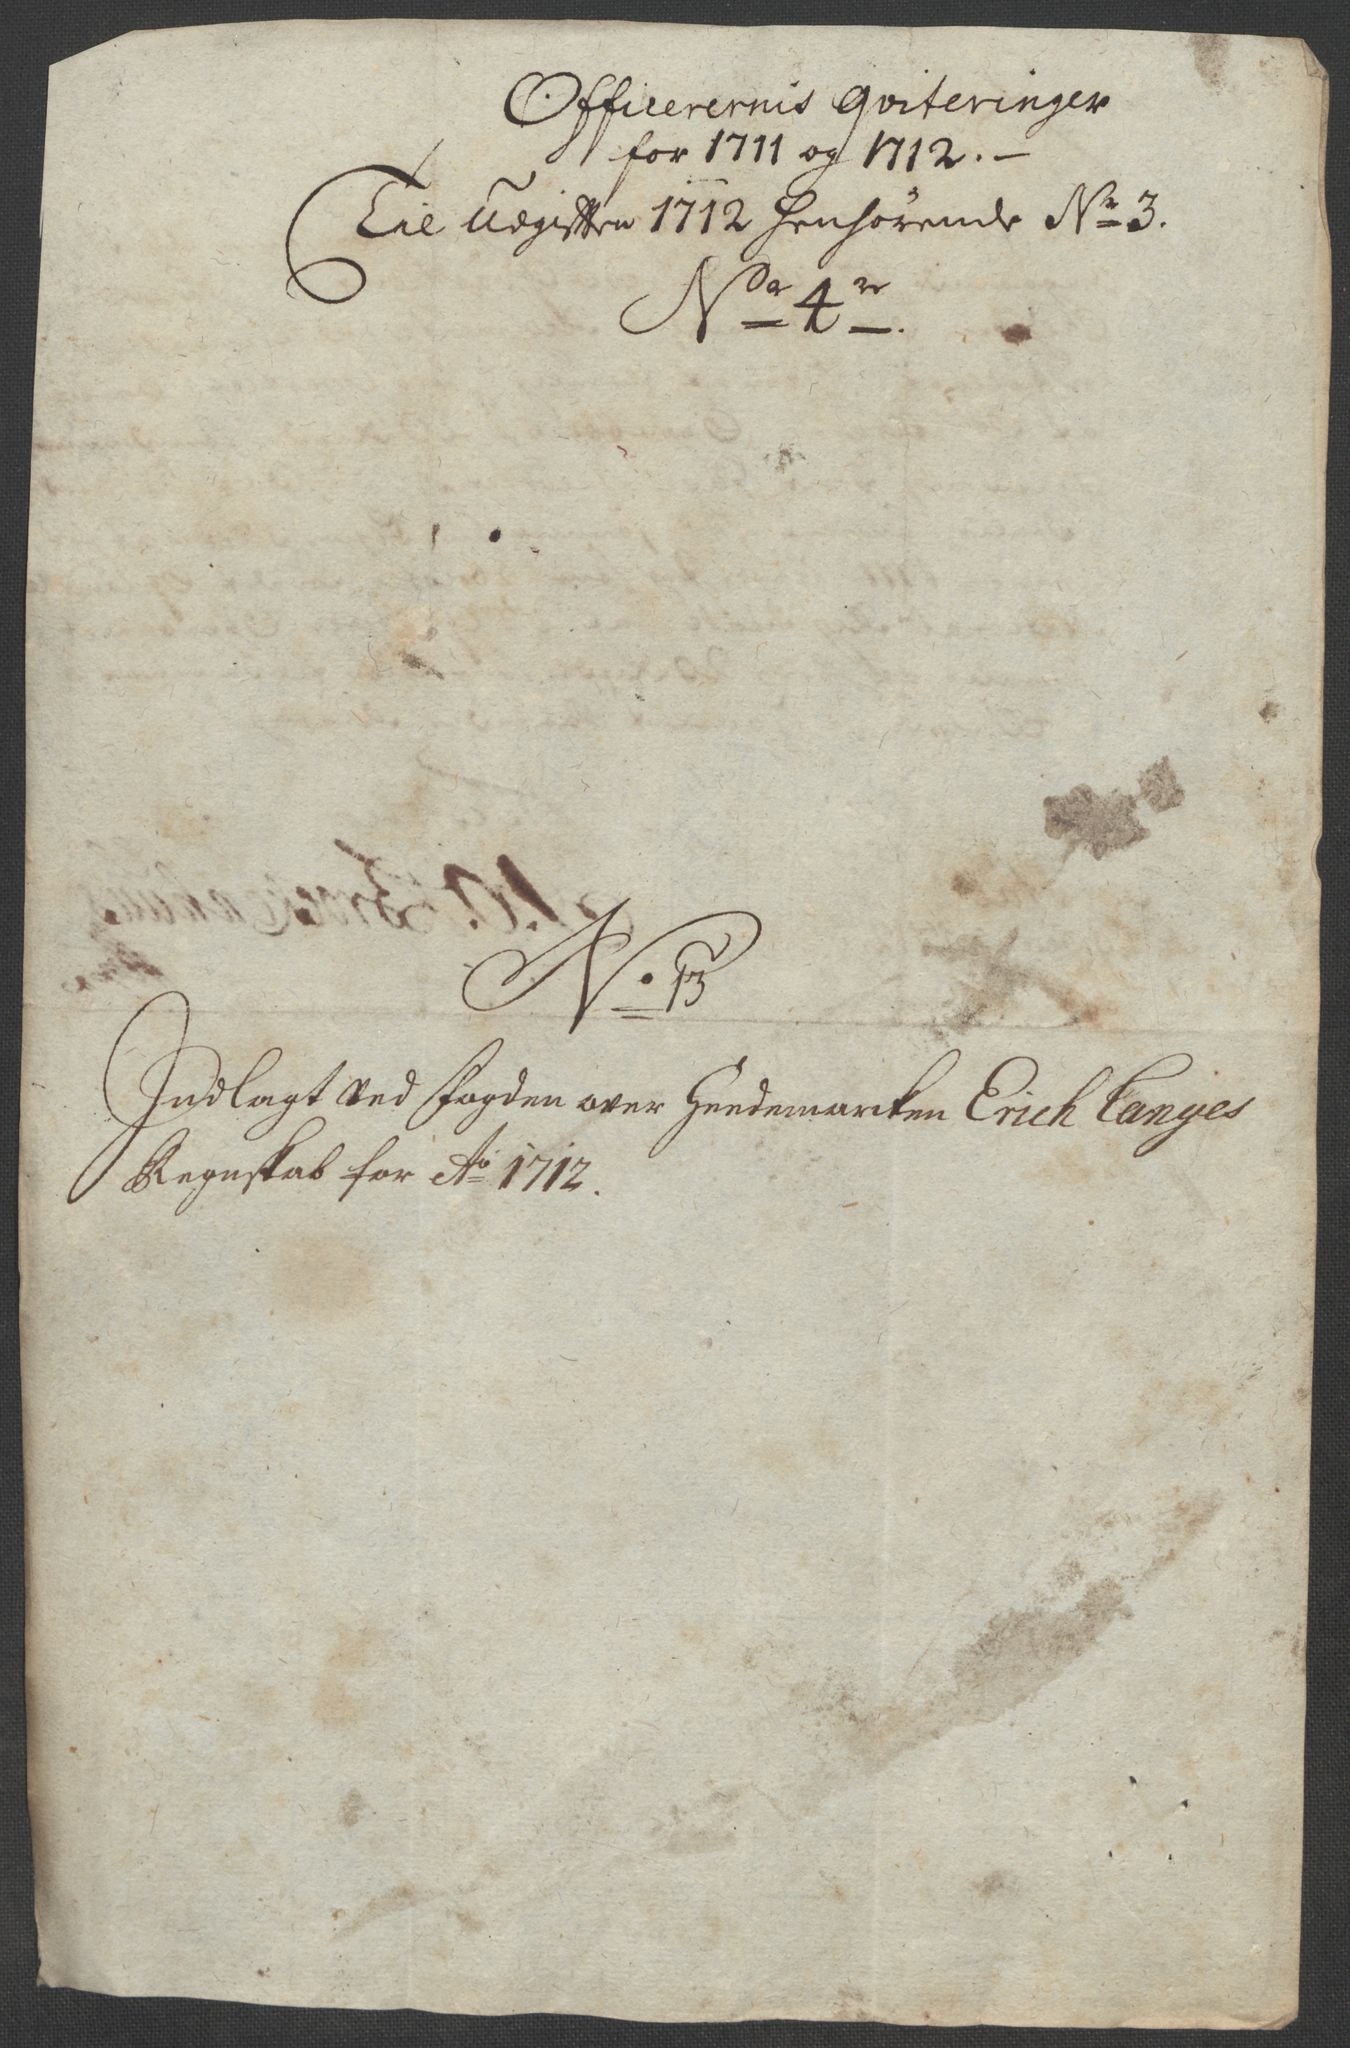 Officerernis qviteringer
for 1711 og 1712. —
Till Udgiften 1712 henhörende No 3.
No 4
No 13
Indlagt ved Fogden over Heedemarcken Erich Langes
Regnskab for Ao 1712.